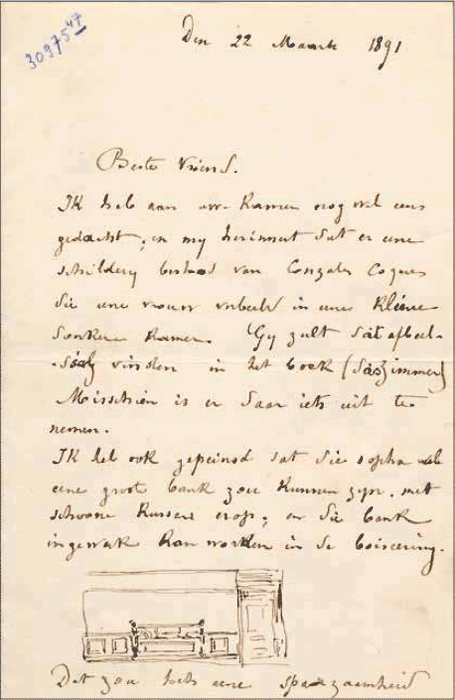 309757⁴⁷
Den 22 Maarte 1891
Beste Vriend.
Ik heb aan uwe Kamer nog wel eens
gedacht, en my herinnert dat er eene
schildery bestaat van Gonzales Coques
die eene vrouw verbeeld in eene kleine
donkere Kamer. Gy zult dat afbeel-
-sel vinden in het boek (das Zimmer)
Misschien is er daar iets uit te
nemen.
Ik heb ook gepeinsd dat die sopha wel
eene groote bank zou kunnen zyn, met
schoone Kussens erop, en die bank
ingewerkt kan worden in de boisering.
Dat zou toch eene spaarzaamheid